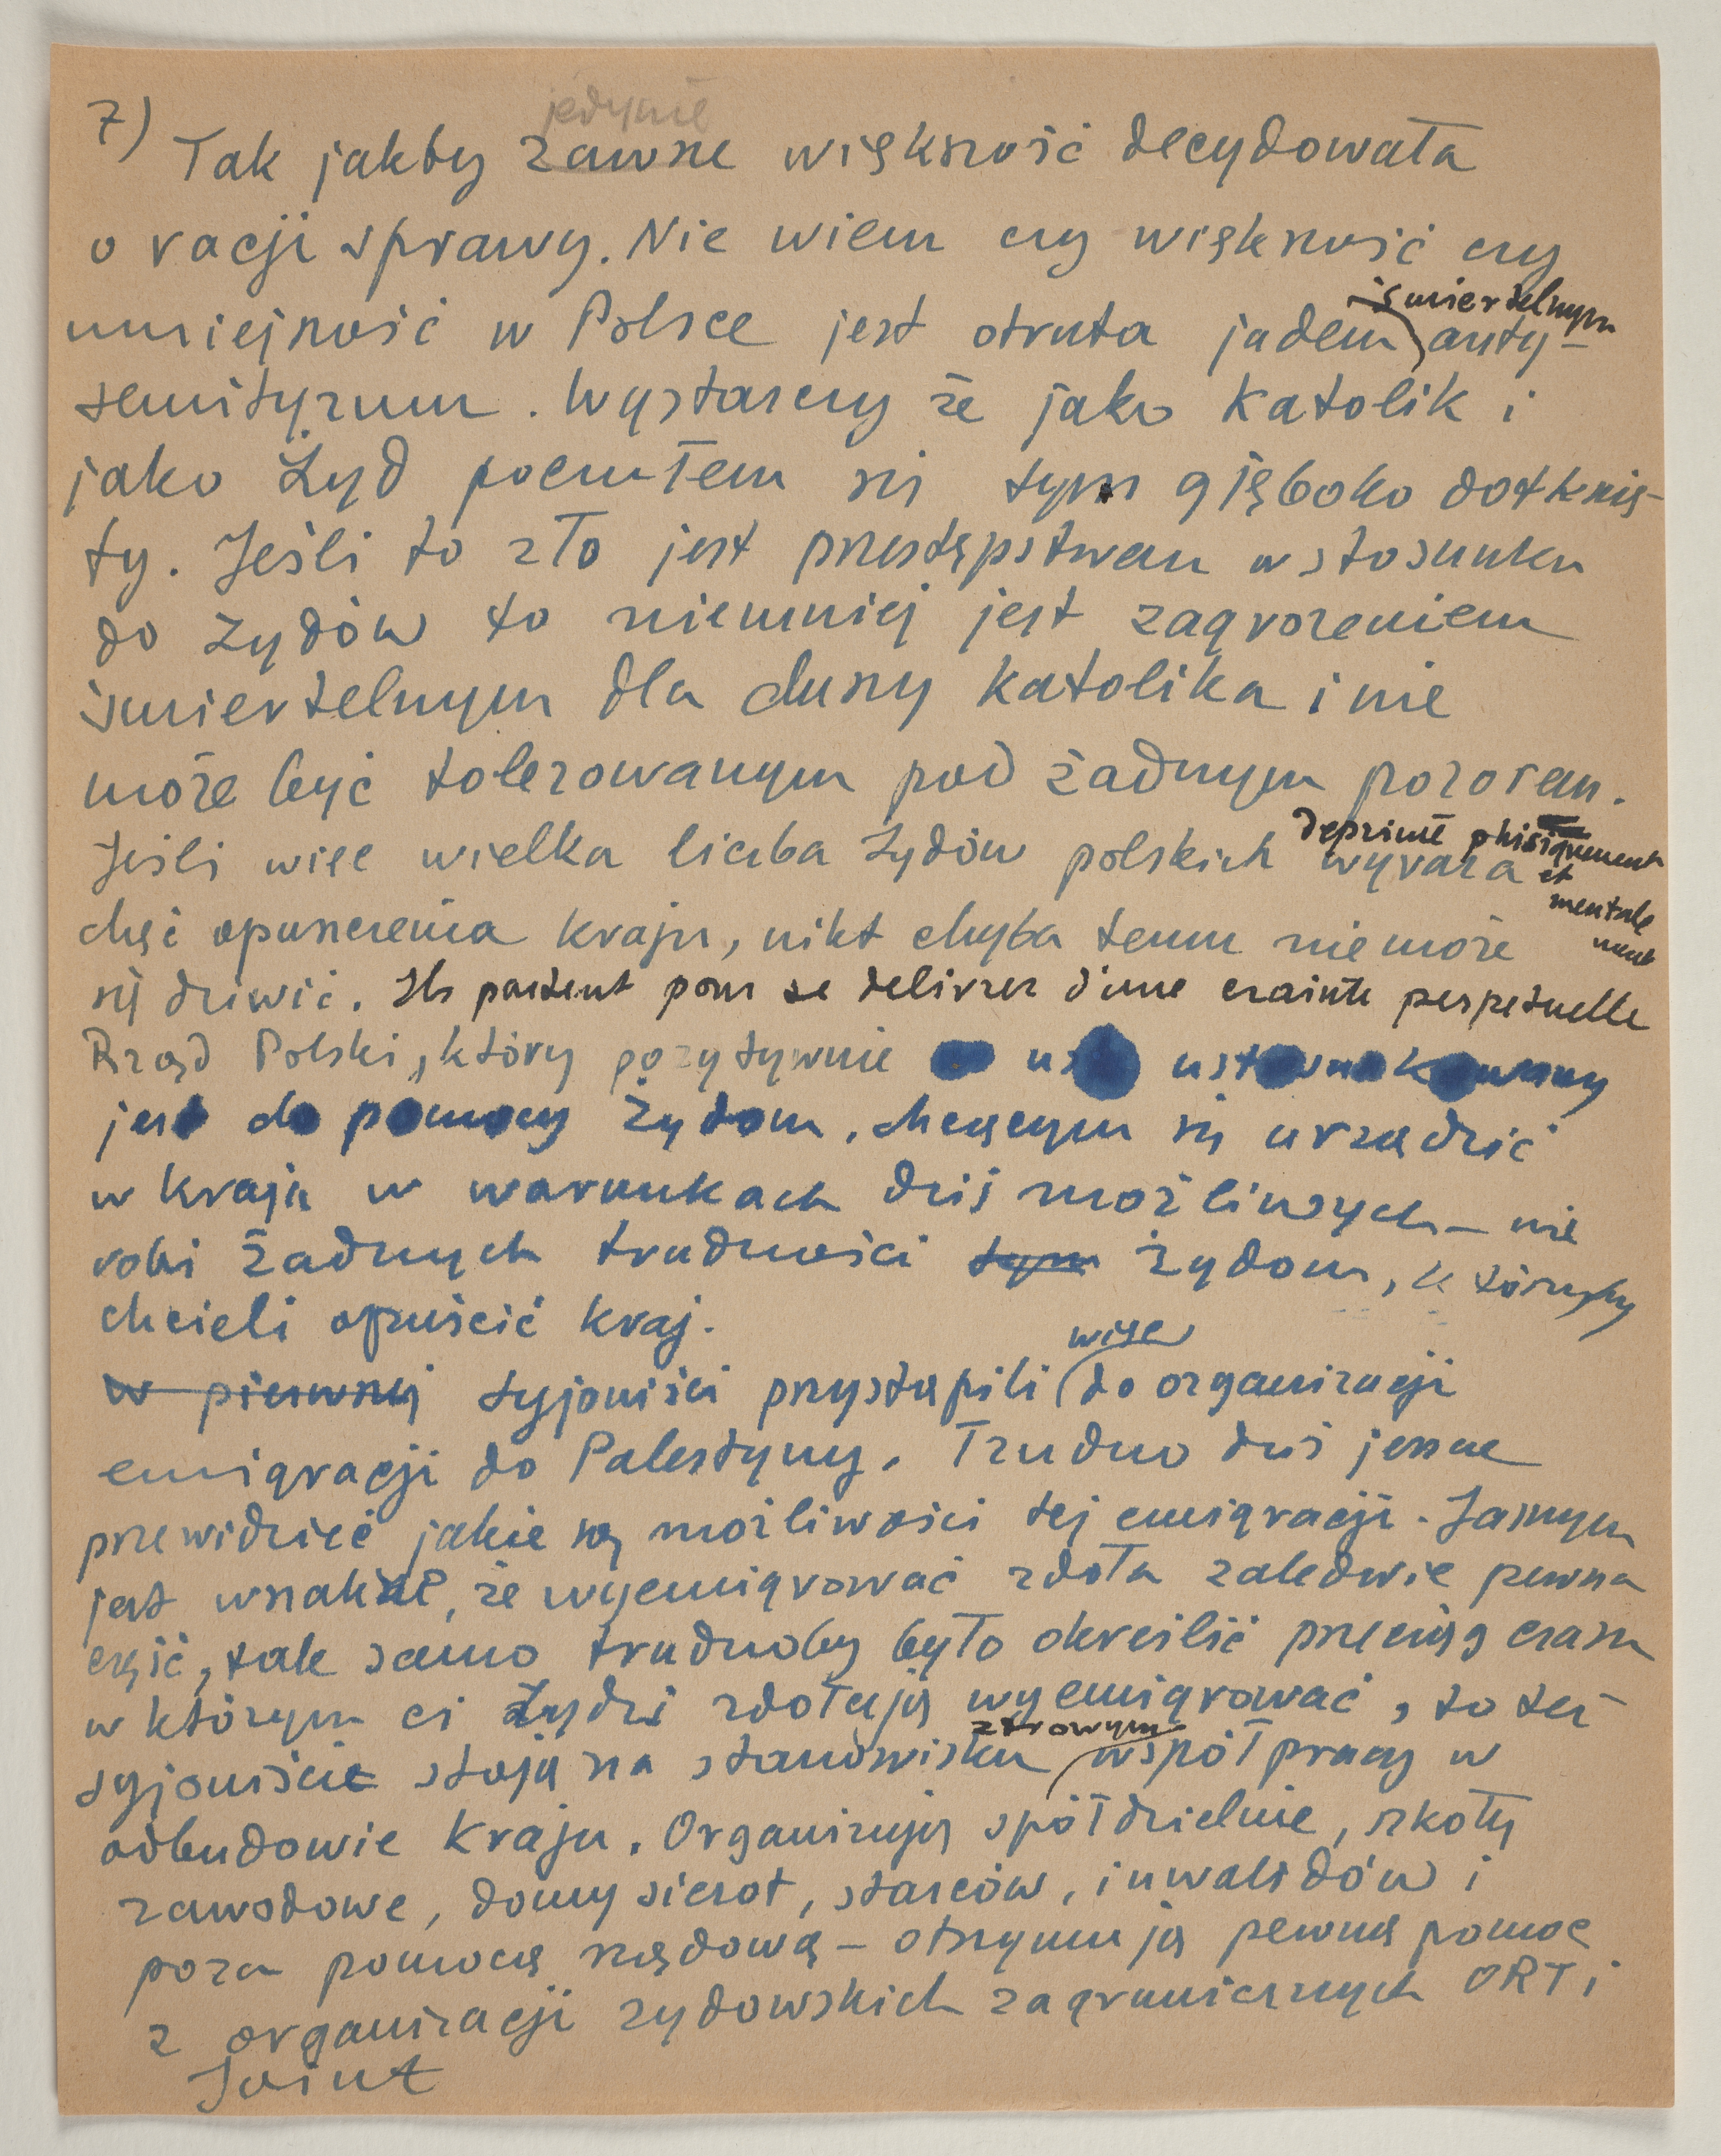 7)
jedynie
Tak jakby zawsze większość decydowała
o racji sprawy. Nie wiem czy większość czy
śmiertelnym
mniejszość w Polsce jest otruta jadem anty-
semityzmu. Wystarczy że jako katolik i
jako Żyd poczułem się tym głęboko dotknię-
ty. Jeśli to zło jest przestępstwem w stosunku
do żydów to niemniej jest zagrożeniem
śmiertelnym dla duszy katolika i nie
może być tolerowanym pod żadnym pozorem.
deprimé phisiquement
Jeśli więc wielka liczba Żydów polskich wyraża
et
mentale
ment
chęć opuszczenia kraju, nikt chyba temu nie może
się dziwić. Ils partent pour se delivrer d'une crainte perpetuelle
Rząd Polski, który pozytywnie us ustosunkowany
jest do pomocy żydom, chcącym się urządzić
w kraju w warunkach dziś możliwych – nie
robi żadnych trudności tym żydom, którzyby
chcieli opuścić kraj.
więc
w pierwszej syjoniści przystąpili do organizacji
emigracji do Palestyny. Trudno dziś jeszcze
przewidzieć jakie są możliwości tej emigracji. Jasnym
jest wszakże, że wyemigrować zdoła zaledwie pewna
część, tak samo trudnoby było określić przeciąg czasu
w którym ci żydzi zdołają wyemigrować, to też
zdrowym
syjoniście stoją na stanowisku współpracy w
odbudowie kraju. Organizują spółdzielnie, szkoły
zawodowe, domy sierot, starców, inwalidów i
poza pomocą rządową – otrzymują pewną pomoc
z organizacji żydowskich zagranicznych ORT i
Joint